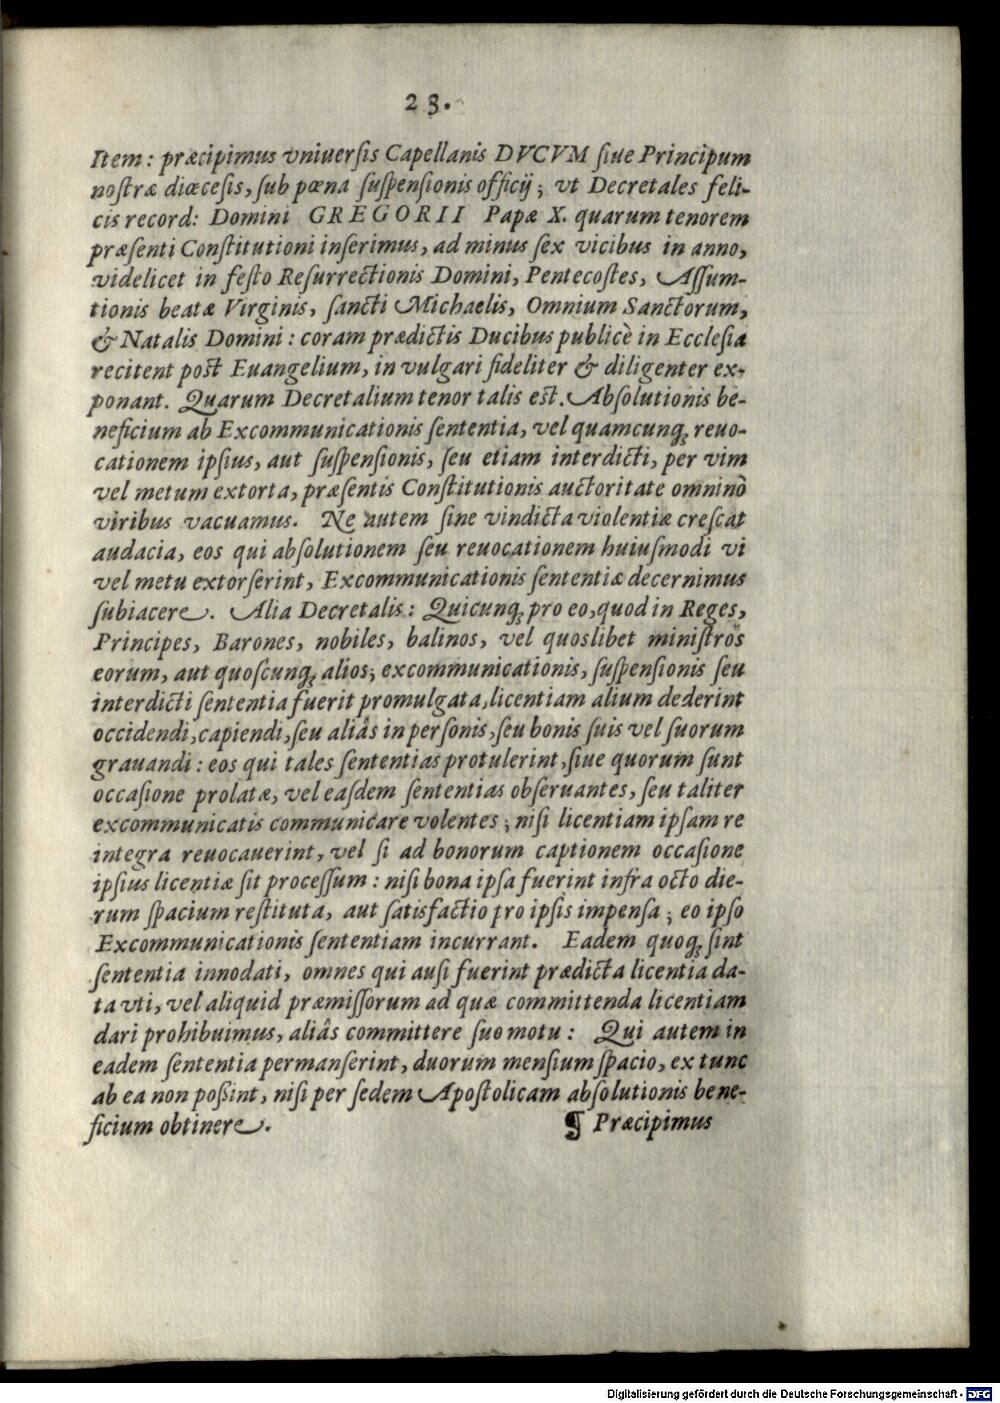 23.
Item: præcipimus vniuerſis Capellanis DVCVM ſiue Principum
noſtræ diœceſis, ſub pœna ſuſpenſionis officij; vt Decretales feli-
cis record: Domini GREGORII Papæ X. quarum tenorem
præſenti Conſtitutioni inſerimus, ad minus ſex vicibus in anno,
videlicet in feſto Reſurrectionis Domini, Pentecoſtes, Aſſum-
tionis beatæ Virginis, ſancti Michaelis, Omnium Sanctorum,
& Natalis Domini: coram prædictis Ducibus publicè in Eccleſia
recitent poſt Euangelium, in vulgari fideliter & diligenter ex-
ponant. Quarum Decretalium tenor talis eſt. Abſolutionis be-
neficium ab Excommunicationis ſententia, vel quamcunq; reuo-
cationem ipſius, aut ſuſpenſionis, ſeu etiam interdicti, per vim
vel metum extorta, præſentis Conſtitutionis auctoritate omninò
viribus vacuamus. Ne autem ſine vindicta violentiæ creſcat
audacia, eos qui abſolutionem ſeu reuocationem huiuſmodi vi
vel metu extorſerint, Excommunicationis ſententiæ decernimus
ſubiacere. Alia Decretalis: Quicunq; pro eo, quod in Reges,
Principes, Barones, nobiles, balinos, vel quoslibet miniſtros
eorum, aut quoſcunq; alios; excommunicationis, ſuſpenſionis ſeu
interdicti ſententia fuerit promulgata, licentiam alium dederint
occidendi, capiendi, ſeu aliâs in perſonis, ſeu bonis ſuis vel ſuorum
grauandi: eos qui tales ſententias protulerint, ſiue quorum ſunt
occaſione prolatæ, vel eaſdem ſententias obſeruantes, ſeu taliter
excommunicatis communicare volentes; niſi licentiam ipſam re
integra reuocauerint, vel ſi ad bonorum captionem occaſione
ipſius licentiæ ſit proceſſum: niſi bona ipſa fuerint infra octo die-
rum ſpacium reſtituta, aut ſatisfactio pro ipſis impenſa; eo ipſo
Excommunicationis ſententiam incurrant. Eadem quoq; ſint
ſententia innodati, omnes qui auſi fuerint prædicta licentia da-
ta vti, vel aliquid præmiſſorum ad quæ committenda licentiam
dari prohibuimus, aliâs committere ſuo motu: Qui autem in
eadem ſententia permanſerint, duorum menſium ſpacio, ex tunc
ab ea non poßint, niſi per ſedem Apoſtolicam abſolutionis bene-
ficium obtinere.
¶ Præcipimus
Digitalisierung gefördert durch die Deutsche Forschungsgemeinschaft - DFG